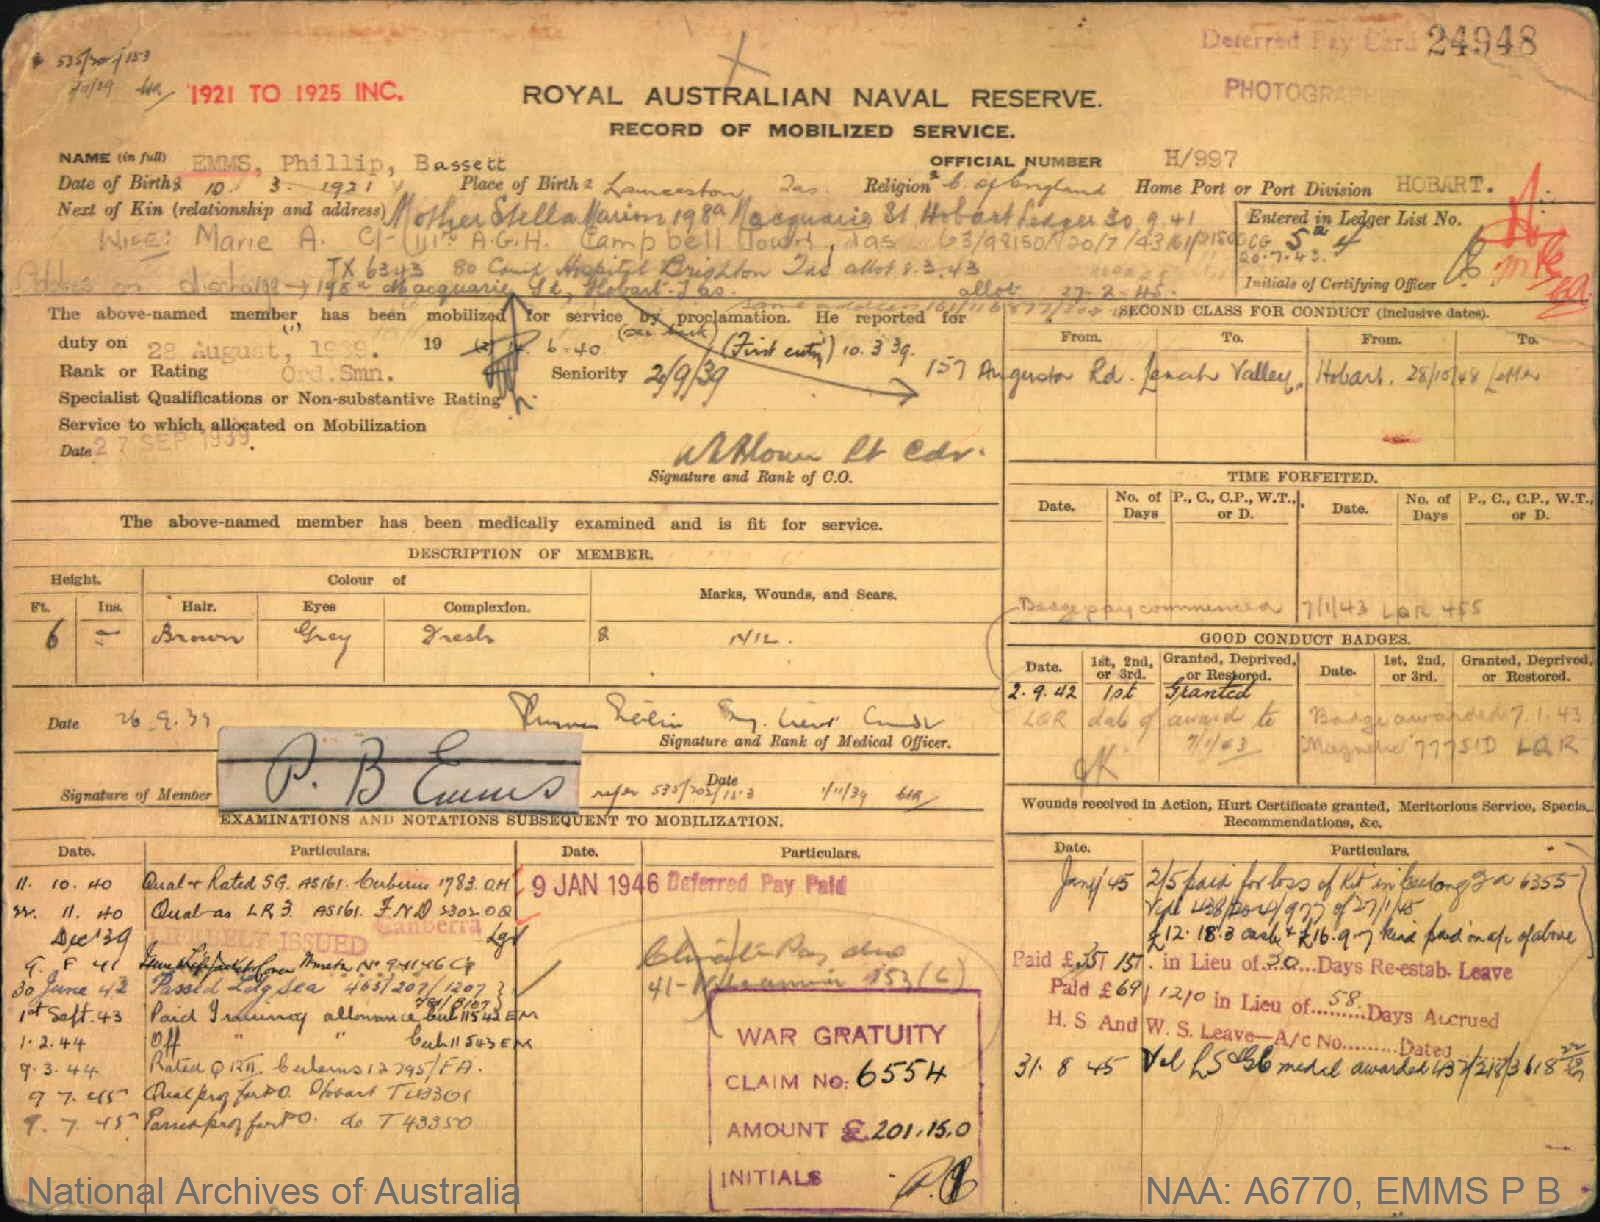 535/202/153
Deferred Pay Card 24948
1921 TO 1925 INC.
ROYAL AUSTRALIAN NAVAL RESERVE.
RECORD OF MOBILIZED SERVICE.
NAME (in full) EMMS, Phillip, Bassett
OFFICIAL NUMBER H/997
Date of Birth 10. 3. 1921 Place of Birth Launceston Tas. Religion C. of England Home Port or Port Division HOBART.
Next of Kin (relationship and address) Mother Stella Marion 198a Macquarie St Hobart Ledger 30.9.41
Entered in Ledger List No.
WIFE: Marie A. C/- 111th A.G.H. Campbell Town, Tas
5th
20.7.43.
TX 6343 80 Camp Hospital Brighton Tas allot 8.3.43
Address on discharge → 198a Macquarie St, Hobart Tas. allot 27-2-45.
Initials of Certifying Officer
The above-named member has been mobilized for service by proclamation. He reported for
duty on 28 August, 1939. 19 6-40 (see back) (First entry) 10.3.39.
Rank or Rating Ord.Smn. Seniority 2/9/39
157 Augusta Rd. Lenah Valley, Hobart. 28/10/48 Letter
Specialist Qualifications or Non-substantive Rating
Service to which allocated on Mobilization
Date 27 SEP 1939.
Lt Cdr.
Signature and Rank of C.O.
SECOND CLASS FOR CONDUCT (inclusive dates).
From. To. From. To.
TIME FORFEITED.
Date. No. of Days P., C., C.P., W.T., or D. Date. No. of Days P., C., C.P., W.T., or D.
Badge pay commenced 7/1/43 LQR 455
The above-named member has been medically examined and is fit for service.
DESCRIPTION OF MEMBER.
Height. Colour of Marks, Wounds, and Scars.
Ft. Ins. Hair. Eyes Complexion.
6 - Brown Grey Fresh NIL.
Date 26.9.39
Signature and Rank of Medical Officer.
Signature of Member P. B Emms
refer 535/202/153 Date 1/11/39
GOOD CONDUCT BADGES.
Date. 1st, 2nd, or 3rd. Granted, Deprived, or Restored. Date. 1st, 2nd, or 3rd. Granted, Deprived, or Restored.
2.9.42 1st Granted
LQR date of award to 7/1/43
Badge awarded 7.1.43
777SID LQR
EXAMINATIONS AND NOTATIONS SUBSEQUENT TO MOBILIZATION.
Date. Particulars. Date. Particulars.
11. 10. 40 Qual & Rated SG. AS161. Cerberus 1783.
11. 40 Qual as LR3. AS161. F.N.D 2302
Dec '39
ISSUED Canberra
30 June 42 Passed Ldg Sea 465/202/1207
1st Sept. 43 Paid Training allowance Cerb 11542 EM
1.2.44 Off " " Cerb 11543 EM
9.3.44 Rated QRII. Cerberus 12795/FA.
9 7. 45 Qual prof for PO. Hobart
9. 7. 45 Passed prof for PO. do T 43350
9 JAN 1946 Deferred Pay Paid
WAR GRATUITY
CLAIM No: 6554
AMOUNT £ 201.15.0
INITIALS
Wounds received in Action, Hurt Certificate granted, Meritorious Service, Special Recommendations, &c.
Date. Particulars.
Jany '45 2/5 paid for loss of Kit in Geelong 6355
of 27/1/45
£12. 18. 3 cash & £16. 9. 7 kind paid on a/c of above
Paid £35/ 15/. in Lieu of 30 Days Re-estab. Leave
Paid £69/ 12/0 in Lieu of 58 Days Accrued
H. S And W. S. Leave—A/c No......... Dated
31. 8 45 medal awarded
National Archives of Australia
NAA: A6770, EMMS P B